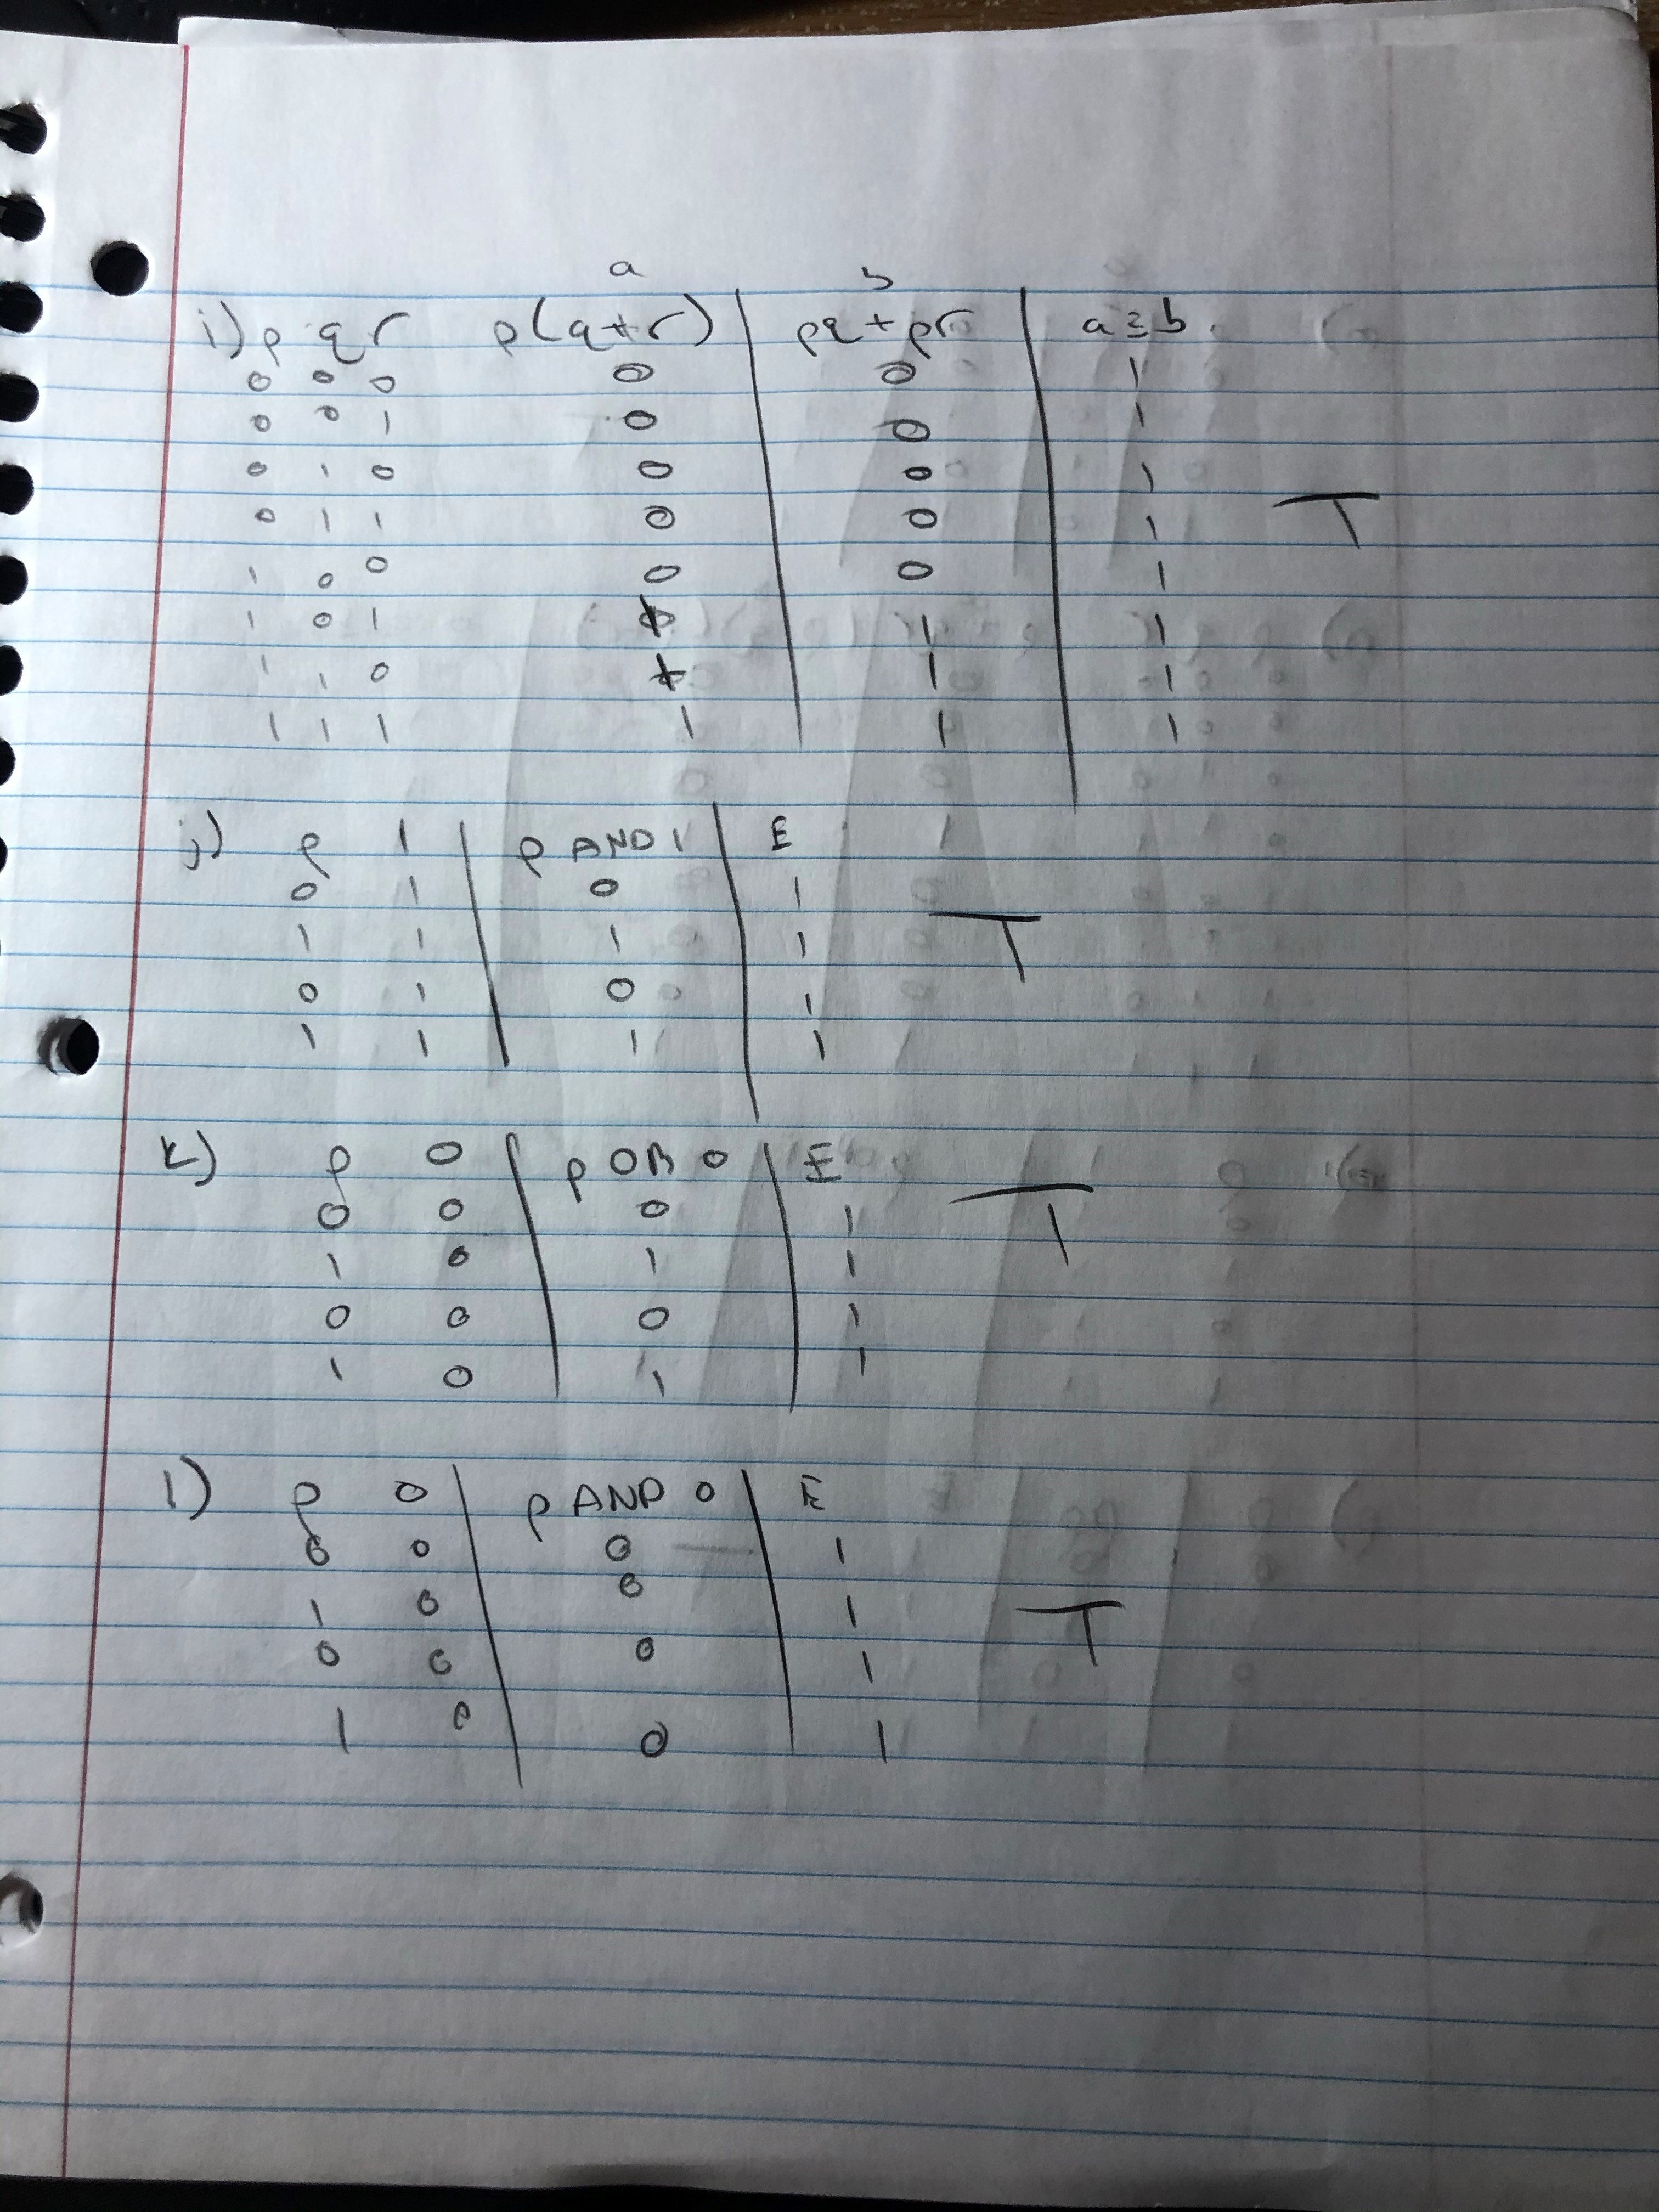 a b
i) p q r p(q+r) pq + pr a ≡ b.
0 0 0 0 0 1
0 0 1 0 0 1
0 1 0 0 0 1
0 1 1 0 0 1 T
1 0 0 0 0 1
1 0 1 1 1 1
1 1 0 1 1 1
1 1 1 1 1 1
j) p 1 p AND 1 E
0 1 0 1
1 1 1 1 T
0 1 0 1
1 1 1 1
k) p 0 p OR 0 E
0 0 0 1 T
1 0 1 1
0 0 0 1
1 0 1 1
l) p 0 p AND 0 E
0 0 0 1
1 0 0 1 T
0 0 0 1
1 0 0 1